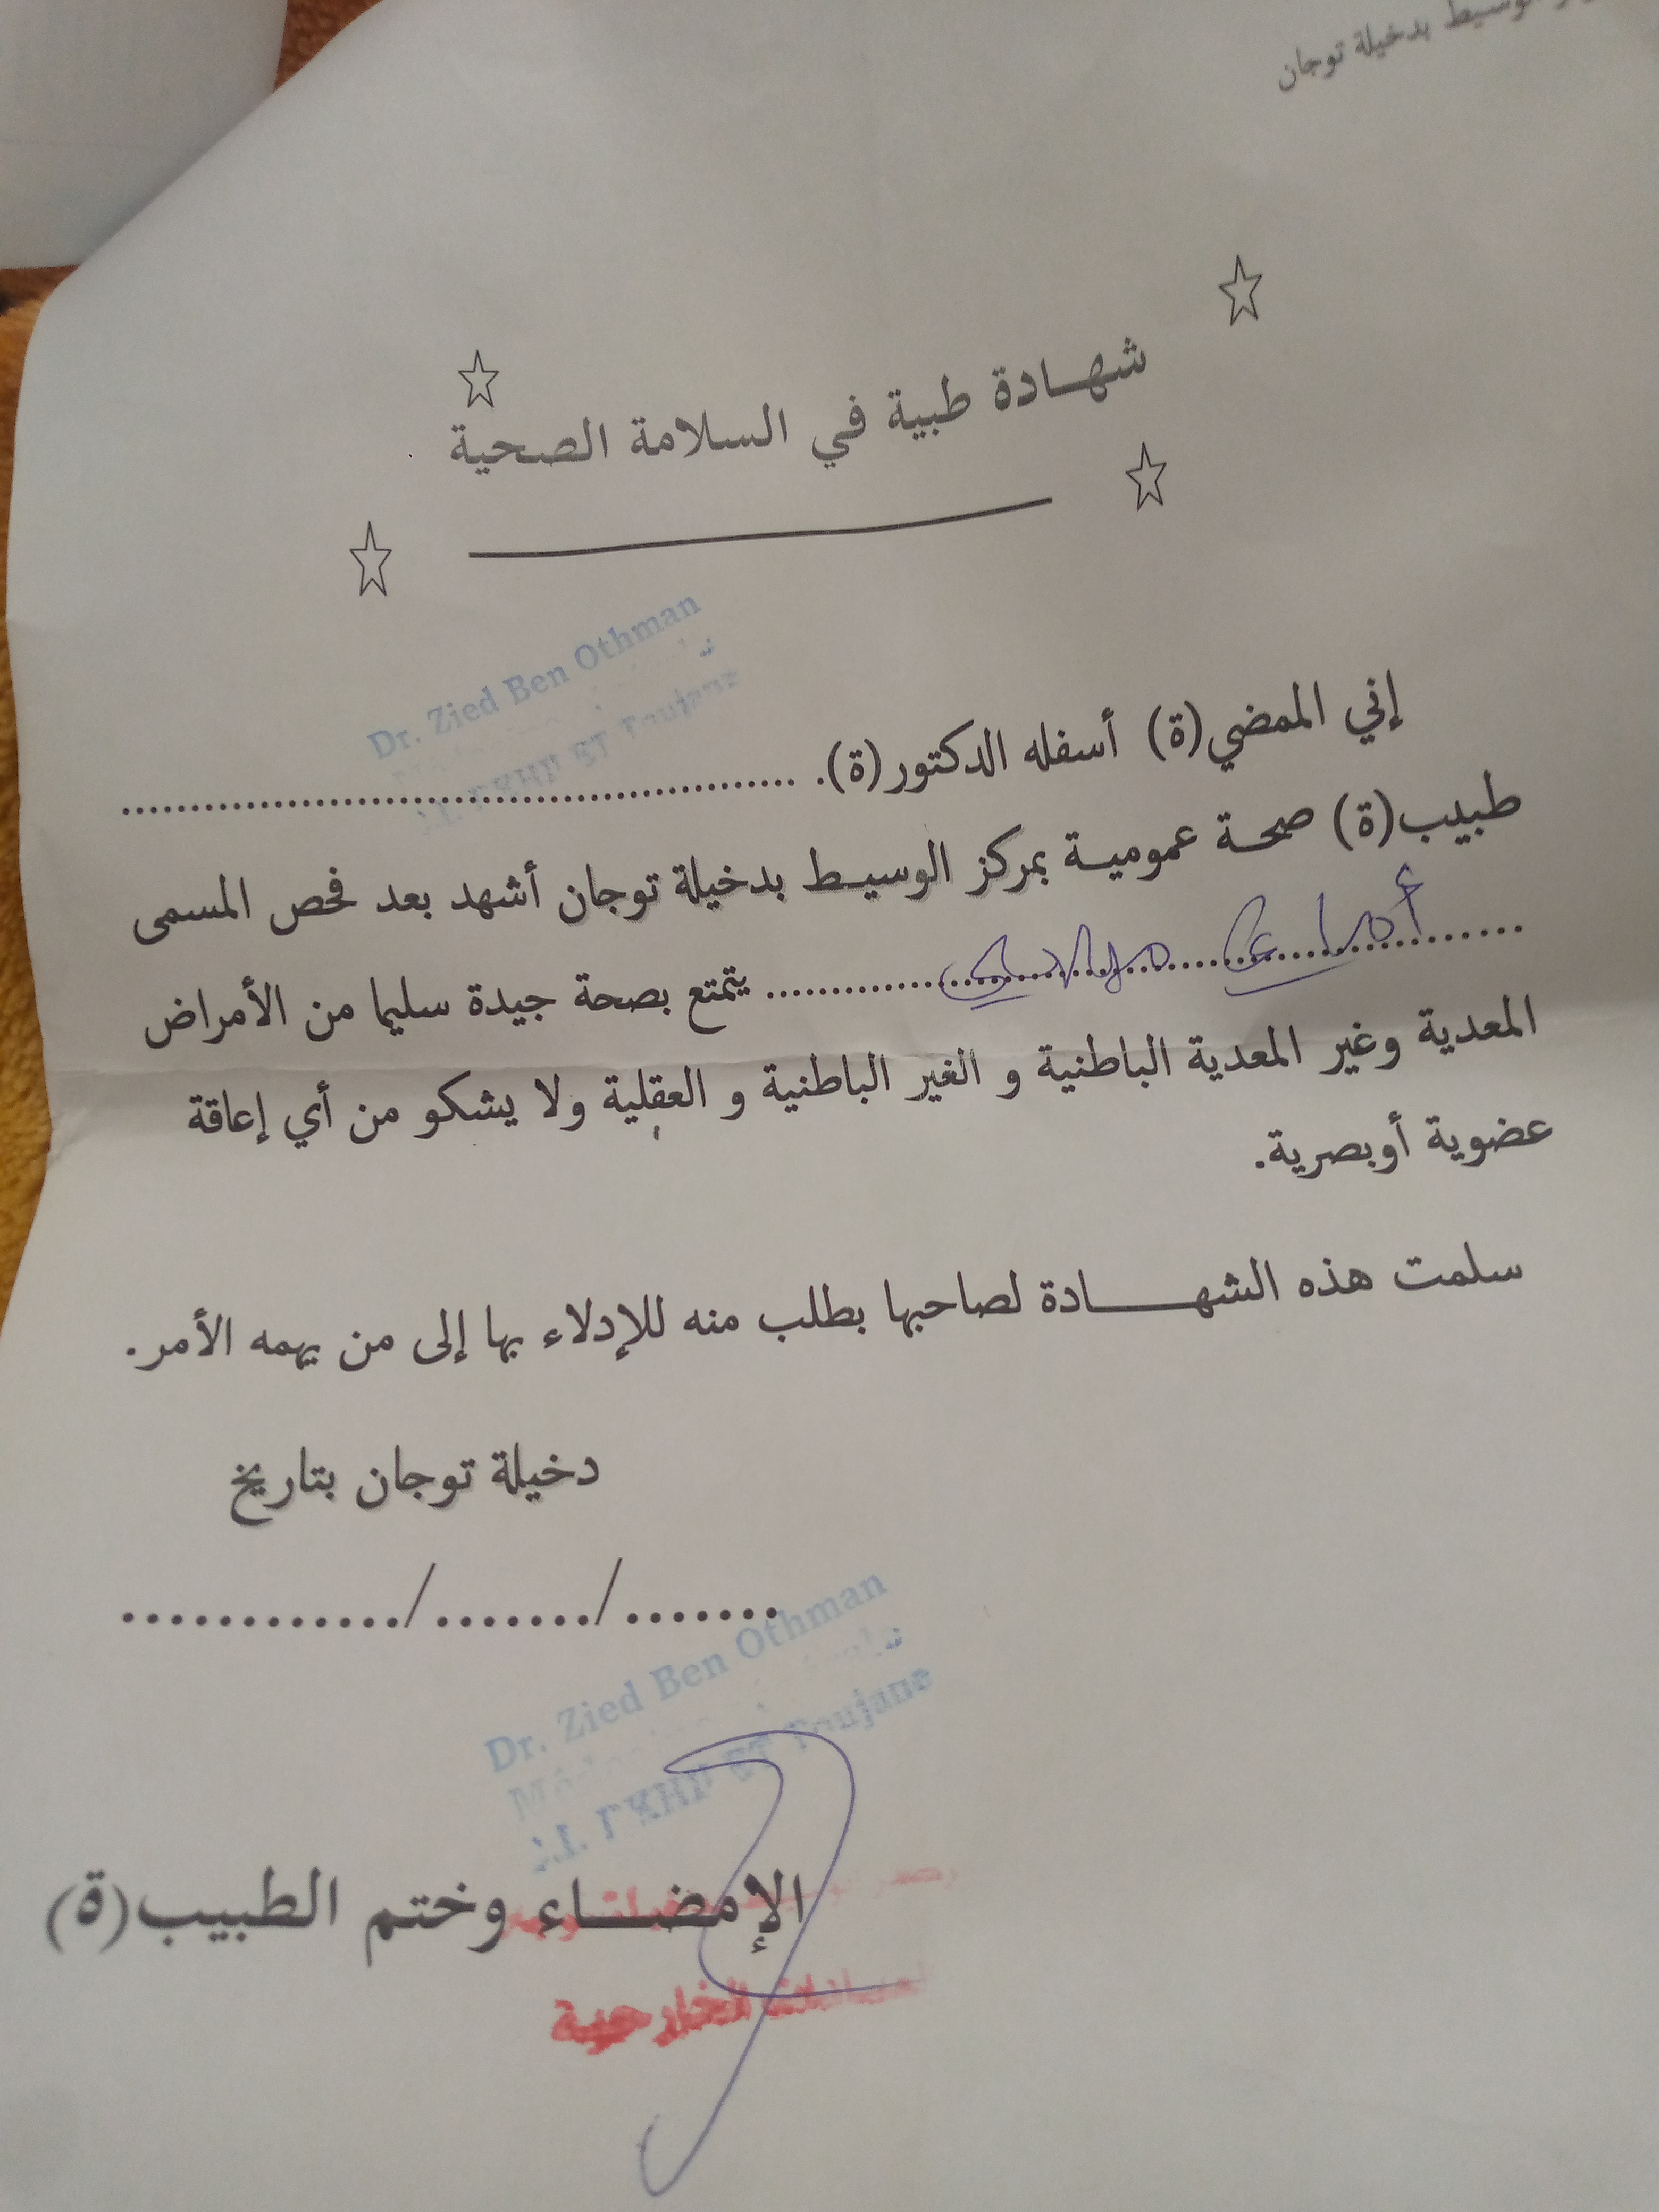 الوسيط بدخيلة توجان
شهادة طبية في السلامة الصحية
Dr. Zied Ben Othman
Toujane
إني الممضي(ة) أسفله الدكتور(ة). ..........................................................
طبيب(ة) صحة عمومية بمركز الوسيط بدخيلة توجان أشهد بعد فحص المسمى
.......................................................... يتمتع بصحة جيدة سليما من الأمراض
المعدية وغير المعدية الباطنية و الغير الباطنية و العقلية ولا يشكو من أي إعاقة
عضوية أوبصرية.
سلمت هذه الشهادة لصاحبها بطلب منه للإدلاء بها إلى من يهمه الأمر.
دخيلة توجان بتاريخ
......./......./............
Dr. Zied Ben Othman
Toujane
الإمضاء وختم الطبيب(ة)
الخارجية